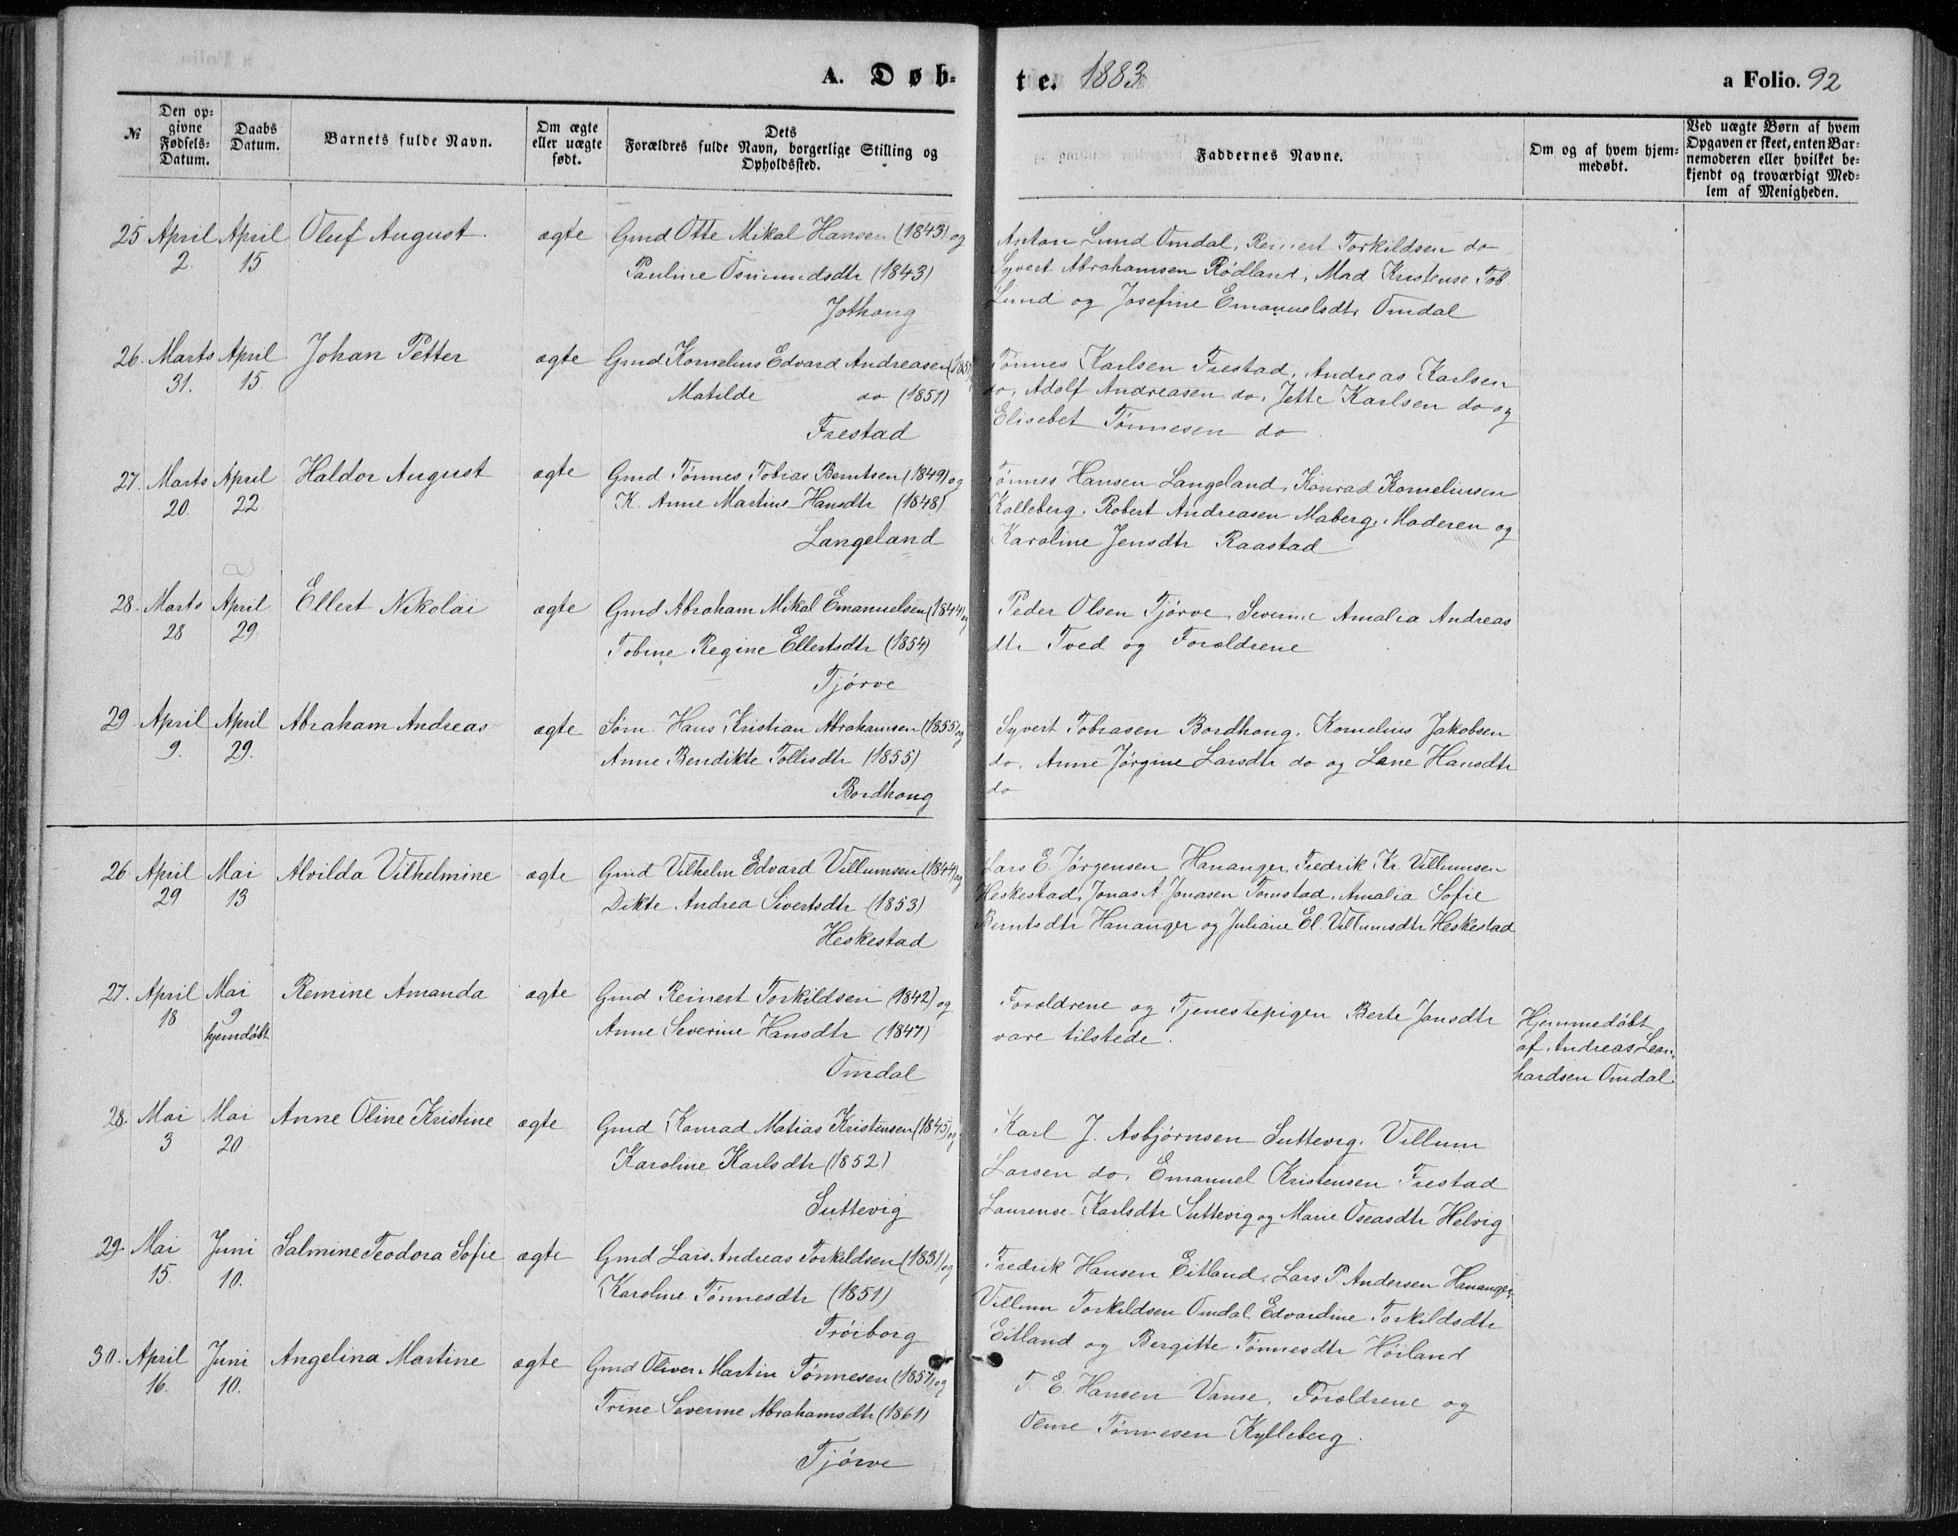 A. Døb-
te. 1883
a Folio. 92
№
Den op-
givne
Fødsels-
Datum.
Daabs
Datum.
Barnets fulde Navn.
Om ægte
eller uægte
født.
Dets
Forældres fulde Navn, borgerlige Stilling og
Opholdssted.
Faddernes Navne.
Om og af hvem hjem-
medøbt.
Ved uægte Børn af hvem
Opgaven er skeet, enten Bar-
nemoderen eller hvilket be-
kjendt og troværdigt Med-
lem af Menigheden.
25 April April Oluf August. ægte Gmd Otte Mikal Hansen (1843) og
2. 15 Pauline Osmundsdtr (1843)
Jothong
Anton Lund Omdal, Reinert Torkildsen do
Syvert Abrahamsen Rødland, Mad Kristense Tob
Lund og Josefine Emanuelsdtr Omdal
26. Marts April Johan Petter ægte Gmd Kornelius Edvard Andreasen
31. 15. Matilde do (1851)
Frestad
Tønnes Karlsen Frestad, Andreas Karlsen
do, Adolf Andreasen do, Jette Karlsen do og
Elisebet Tønnesen do
27. Marts April Haldor August ægte Gmd Tønnes Tobias Berntsen (1849) og
20. 22. K. Anne Martine Hansdtr (1848)
Langeland
Tønnes Hansen Langeland, Konrad Korneliussen
Kalleberg, Robert Andreasen Maberg, Moderen og
Karoline Jensdtr Raastad
28. Marts April Ellert Nikolai ægte Gmd Abraham Mikal Emanuelsen (1844) og
28 29. Tobine Regine Ellertsdtr (1854)
Tjørve
Peder Olsen Tjørve, Severine Amalia Andreas
dtr Tved og Forældrene
29. April April Abraham Andreas ægte Søm. Hans Kristian Abrahamsen (1855) og
9. 29. Anne Bendikte Tollisdtr (1855)
Bordhong
Syvert Tobiasen Bordhong, Kornelius Jakobsen
do, Anne Jørgine Larsdtr do og Lene Hansdtr
do
26 April Mai Alvilda Vilhelmine ægte Gmd Vilhelm Edvard Villumsen (1844) og
29 13 Dikte Andrea Sivertsdtr (1853)
Heskestad
Lars E. Jørgensen Hananger, Fredrik Kr. Villumsen
Heskestad, Jonas A. Jonasen Tomstad, Amalia Sofie
Berntsdtr Hananger og Juliane El. Villumsdtr Heskestad
27. April Mai Remine Amanda ægte Gmd Reinert Torkildsen (1842) og
18 9 Anne Severine Hansdtr (1847)
hjemdøbt Omdal
Forældrene og Tjenestepigen Berte Jansdtr
vare tilstede.
Hjemmedøbt
af Andreas Leon-
hardsen Omdal.
28. Mai Mai Anne Oline Kristine ægte Gmd Konrad Matias Kristensen (1845) og
3 20 Karoline Karlsdtr (1852)
Suttevig
Karl J. Asbjørnsen Suttevig, Villum
Larsen do, Emanuel Kristensen Frestad
Laurense Karlsdtr Suttevig og Marie Oseasdtr Helvig
29. Mai Juni Salmine Teodora Sofie ægte Gmd Lars Andreas Torkildsen (1831) og
15. 10. Karoline Tønnesdtr (1851)
Trøiborg
Fredrik Hansen Eitland, Lars P Andersen Hananger,
Villum Torkildsen Omdal, Edvardine Torkildsdtr
Eitland og Bergitte Tønnesdtr Høiland
30. April Juni Angelina Martine ægte Gmd Oliver Martin Tønnesen (1857) og
16. 10. Trine Severine Abrahamsdtr (1861)
Tjørve
T. E. Hansen Vanse, Forældrene og
Oline Tønnesen Kylleberg.